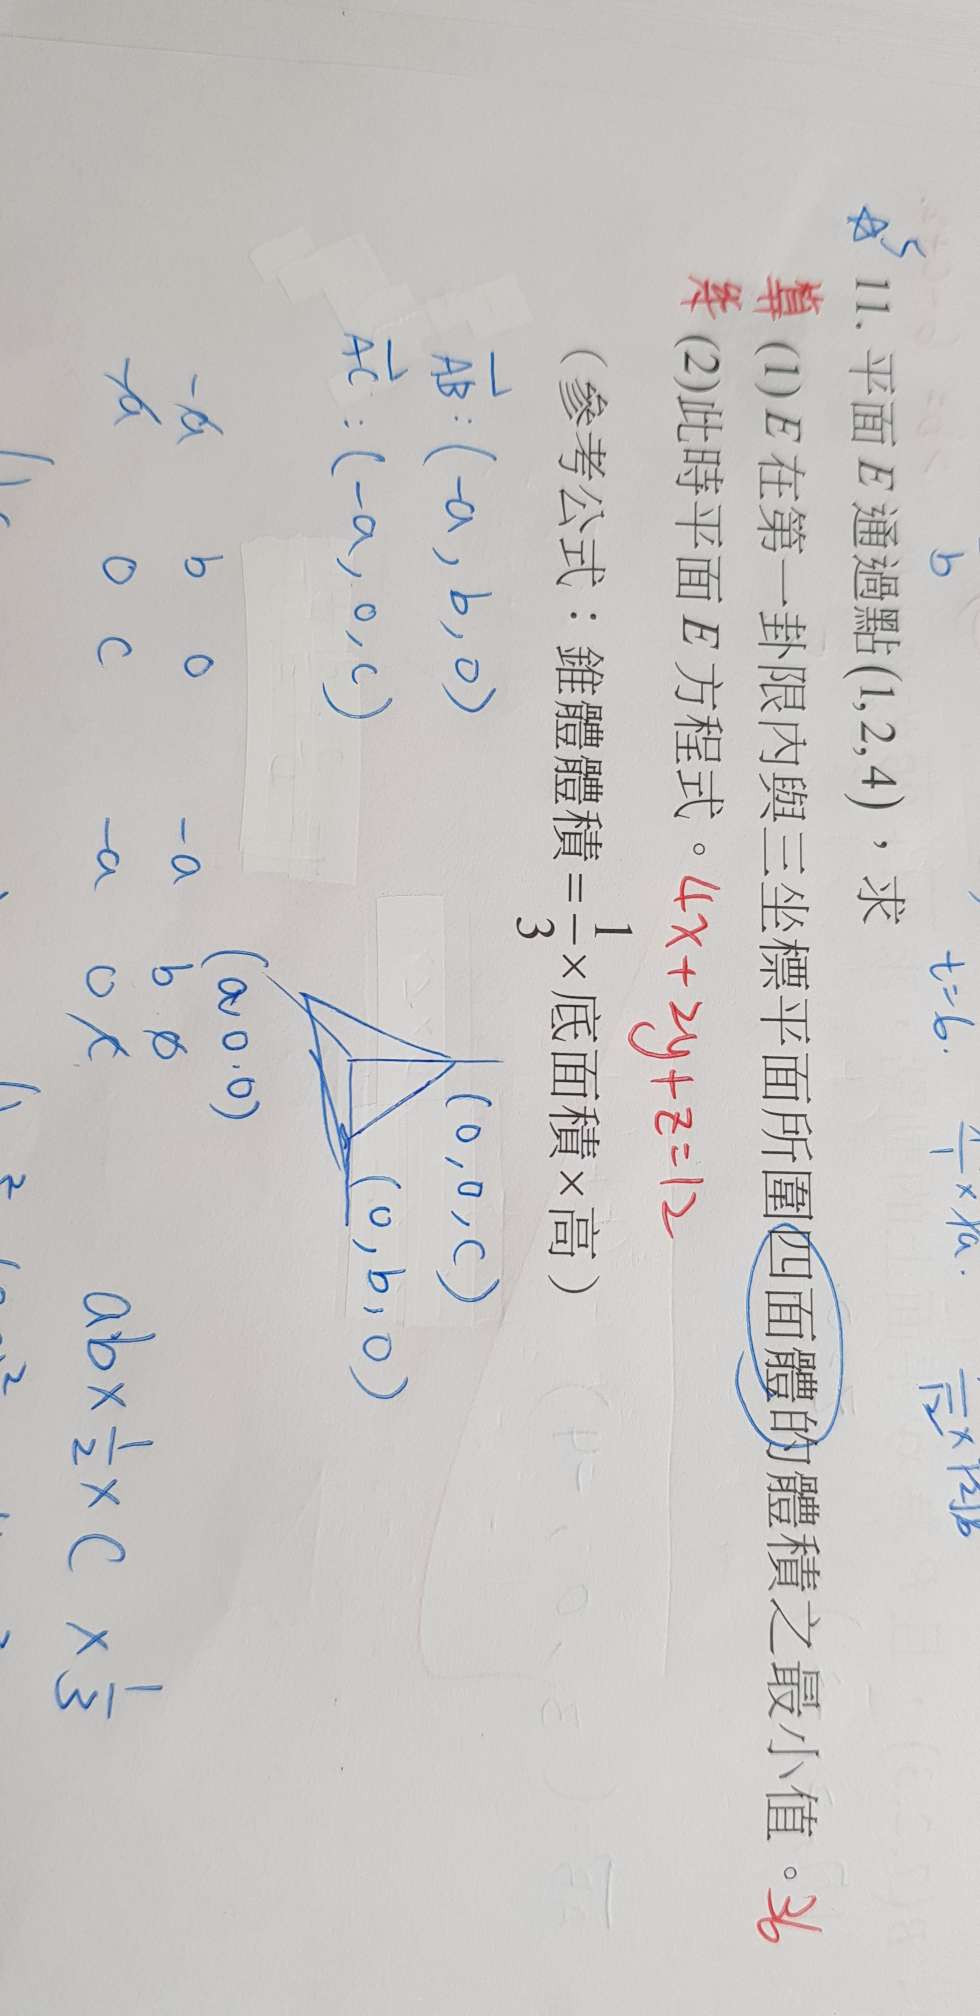 b
t=6.
☆5 11. 平面 E 通過點(1,2,4)，求
(1) E 在第一卦限內與三坐標平面所圍四面體的體積之最小值。36
(2)此時平面 E 方程式。4x+2y+z=12
(參考公式：錐體體積=1/3×底面積×高)
AB:(-a,b,0)
(0,0,c)
AC:(-a,0,c)
(0,b,0)
(a,0,0)
-a b 0 -a b 0
-a 0 c -a 0 c
ab×1/2×c×1/3